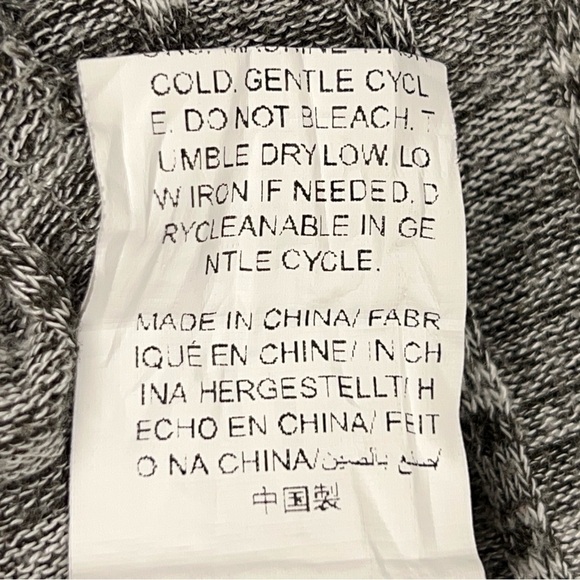 MACHINE WASH
COLD. GENTLE CYCL
E. DO NOT BLEACH. T
UMBLE DRY LOW. LO
W IRON IF NEEDED. D
RYCLEANABLE IN GE
NTLE CYCLE.
MADE IN CHINA/ FABR
IQUÉ EN CHINE/ IN CH
INA HERGESTELLT/ H
ECHO EN CHINA/ FEIT
O NA CHINA/صنع بالصين/
中国製